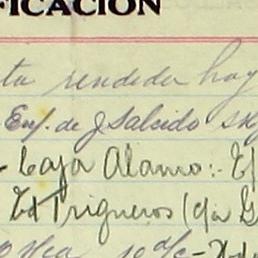 FICACION
ta rendida hoy
Enf. de J Salcido
Caja Alamo:- E/
Ed Trigueros (c/a G